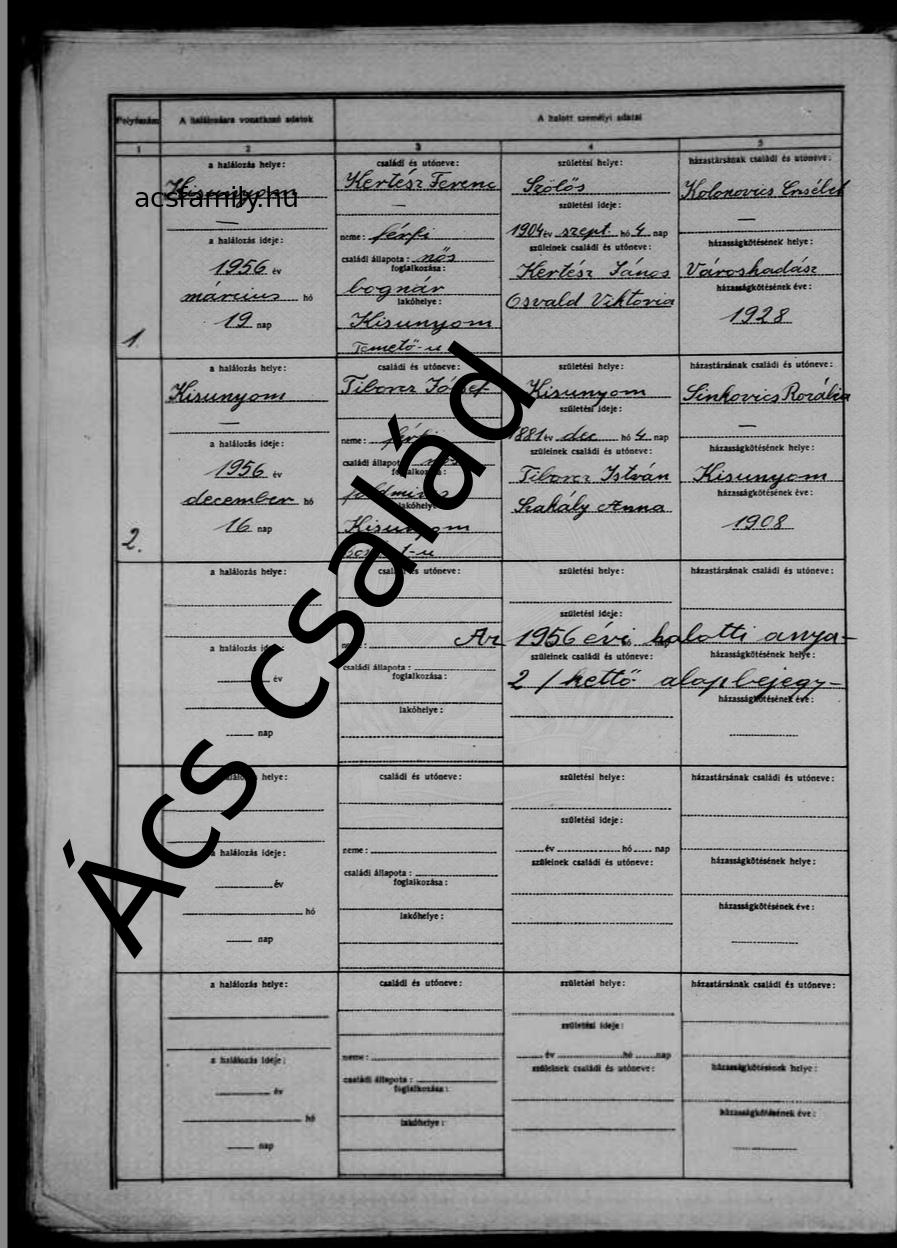 Folyószám
A halálozásra vonatkozó adatok
A halott személyi adatai
1
2
3
4
5
a halálozás helye:
Kisunyom
acsfamily.hu
a halálozás ideje:
1956 év
március hó
19 nap
1.
családi és utóneve:
Kertész Ferenc
neme: férfi
családi állapota: nős
foglalkozása:
bognár
lakóhelye:
Kisunyom
Temető-u
születési helye:
Szőlős
születési ideje:
1904 év szept hó 4 nap
szüleinek családi és utóneve:
Kertész János
Osvald Viktoria
házastársának családi és utóneve:
Kolonovics Erzsébet
házasságkötésének helye:
Városhodász
házasságkötésének éve:
1928
a halálozás helye:
Kisunyom
a halálozás ideje:
1956 év
december hó
16 nap
2.
családi és utóneve:
Tiborcz József
neme: férfi
családi állapota: nős
foglalkozása:
lakóhelye:
Kisunyom
születési helye:
Kisunyom
születési ideje:
1881 év dec hó 4 nap
szüleinek családi és utóneve:
Tiborcz István
Szakály Anna
házastársának családi és utóneve:
Sinkovics Rozália
házasságkötésének helye:
Kisunyom
házasságkötésének éve:
1908
a halálozás helye:
a halálozás ideje:
év
nap
családi és utóneve:
családi állapota:
foglalkozása:
lakóhelye:
születési helye:
születési ideje:
Az 1956 évi halotti anya-
szüleinek családi és utóneve:
2 / kettő alapbejegy-
házastársának családi és utóneve:
házasságkötésének helye:
házasságkötésének éve:
Ács család
a halálozás helye:
a halálozás ideje:
év
hó
nap
családi és utóneve:
neme:
családi állapota:
foglalkozása:
lakóhelye:
születési helye:
születési ideje:
év hó nap
szüleinek családi és utóneve:
házastársának családi és utóneve:
házasságkötésének helye:
házasságkötésének éve:
a halálozás helye:
a halálozás ideje:
év
hó
nap
családi és utóneve:
neme:
családi állapota:
foglalkozása:
lakóhelye:
születési helye:
születési ideje:
év hó nap
szüleinek családi és utóneve:
házastársának családi és utóneve:
házasságkötésének helye:
házasságkötésének éve: